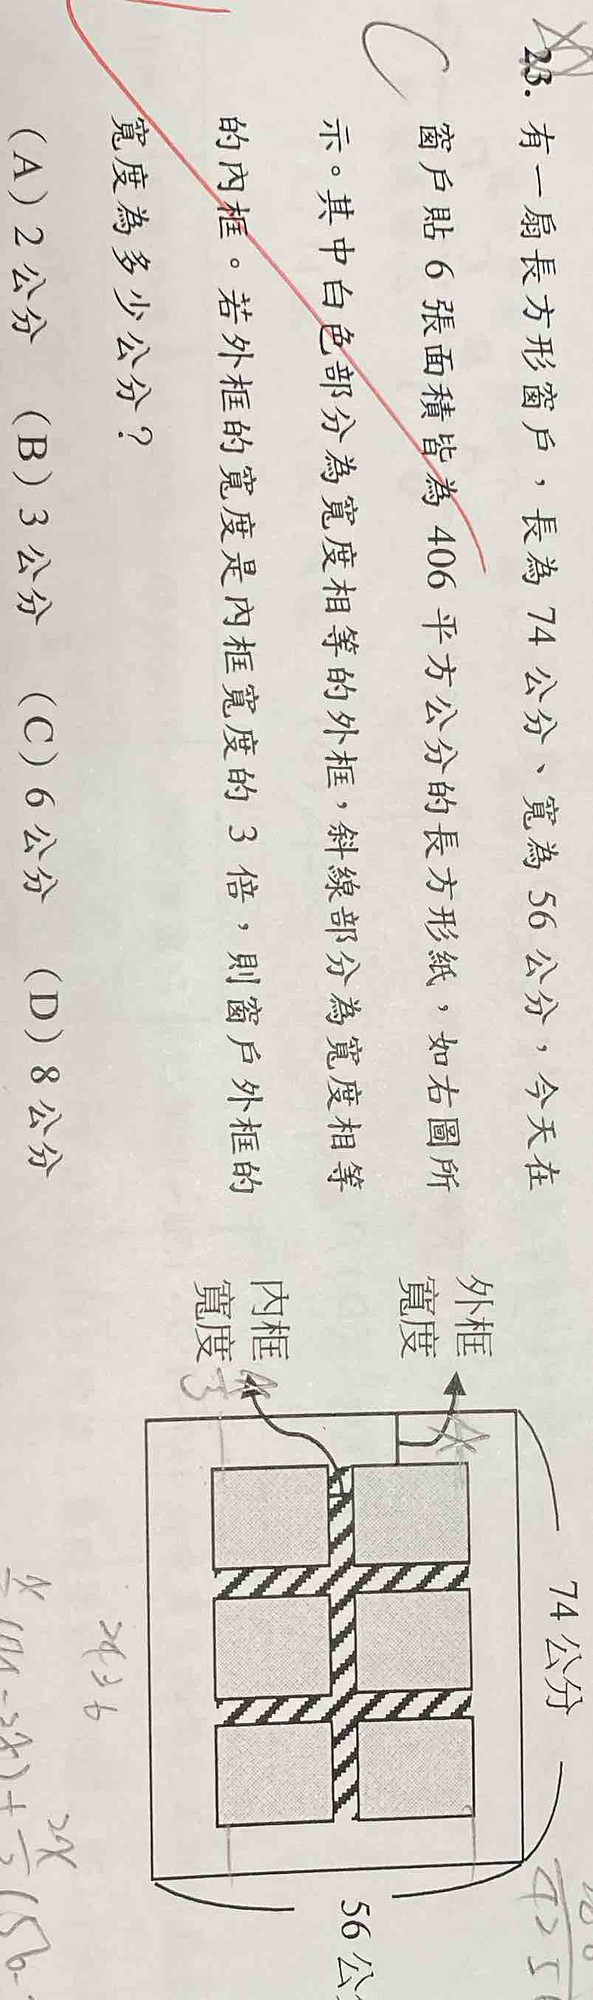 23. 有一扇長方形窗戶，長為 74 公分、寬為 56 公分，今天在
窗戶貼 6 張面積皆為 406 平方公分的長方形紙，如右圖所
示。其中白色部分為寬度相等的外框，斜線部分為寬度相等
的內框。若外框的寬度是內框寬度的 3 倍，則窗戶外框的
寬度為多少公分？
(A) 2 公分 (B) 3 公分 (C) 6 公分 (D) 8 公分
C
74 公分
外框
寬度
x
內框
寬度
x/3
56 公
x=6